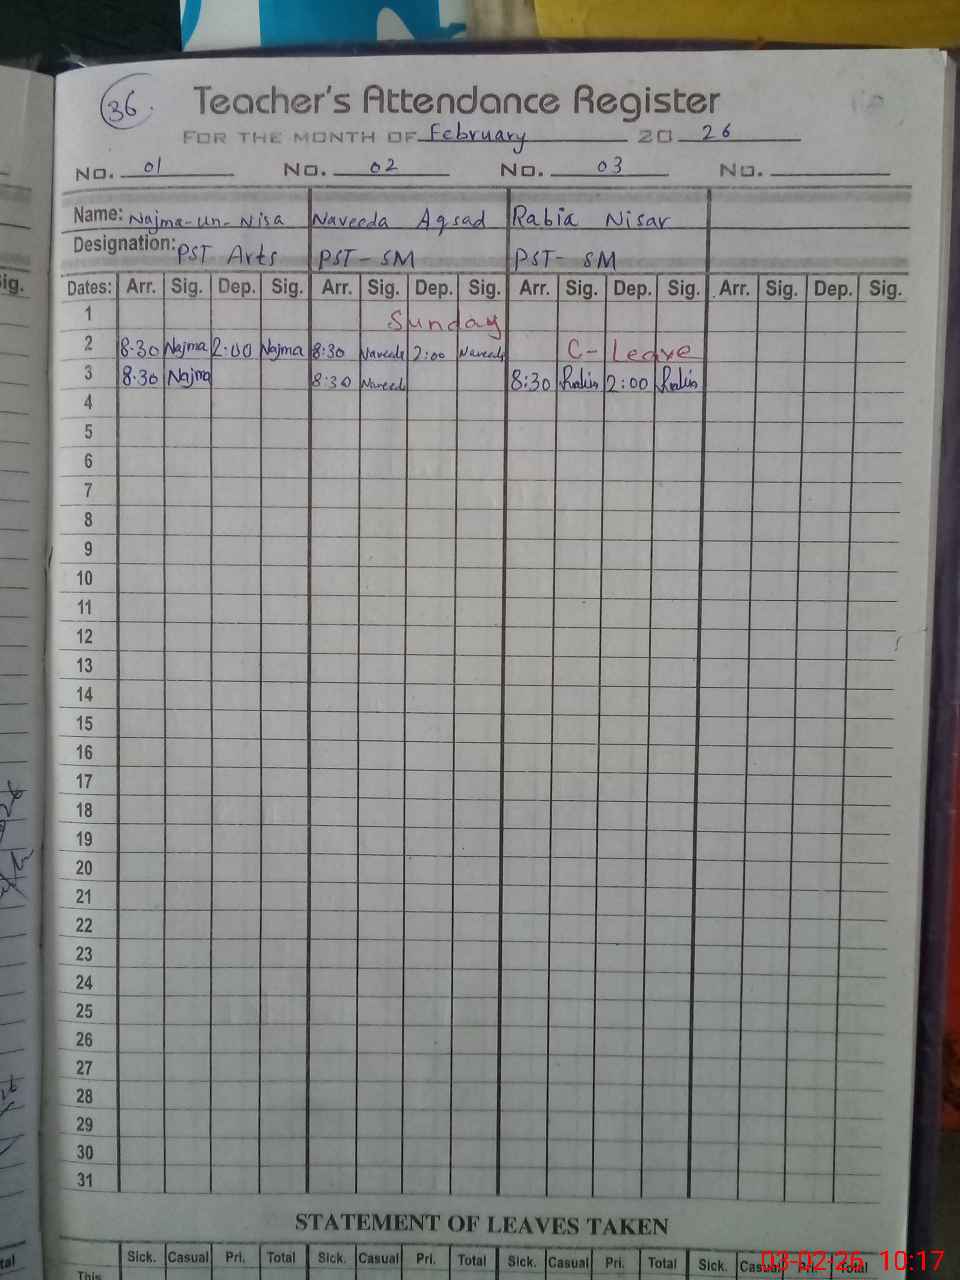 36.
Teacher's Attendance Register
FOR THE MONTH OF February 20 26
No. 01 No. 02 No. 03 No.
Name: Najma-un-Nisa Naveeda Aqsad Rabia Nisar
Designation: PST Arts PST-SM PST-SM
Sig. Dates: Arr. Sig. Dep. Sig. Arr. Sig. Dep. Sig. Arr. Sig. Dep. Sig. Arr. Sig. Dep. Sig.
1 Sunday
2 8.30 Najma 2:00 Najma 8:30 Naveeda 2:00 Naveeda C- Leave
3 8.30 Najma 8:30 Naveeda 8:30 Rabia 2:00 Rabia
4
5
6
7
8
9
10
11
12
13
14
15
16
17
18
19
20
21
22
23
24
25
26
27
28
29
30
31
STATEMENT OF LEAVES TAKEN
Sick. Casual Pri. Total Sick. Casual Pri. Total Sick. Casual Pri. Total Sick. Casual Pri. Total
This
03-02-26 10:17